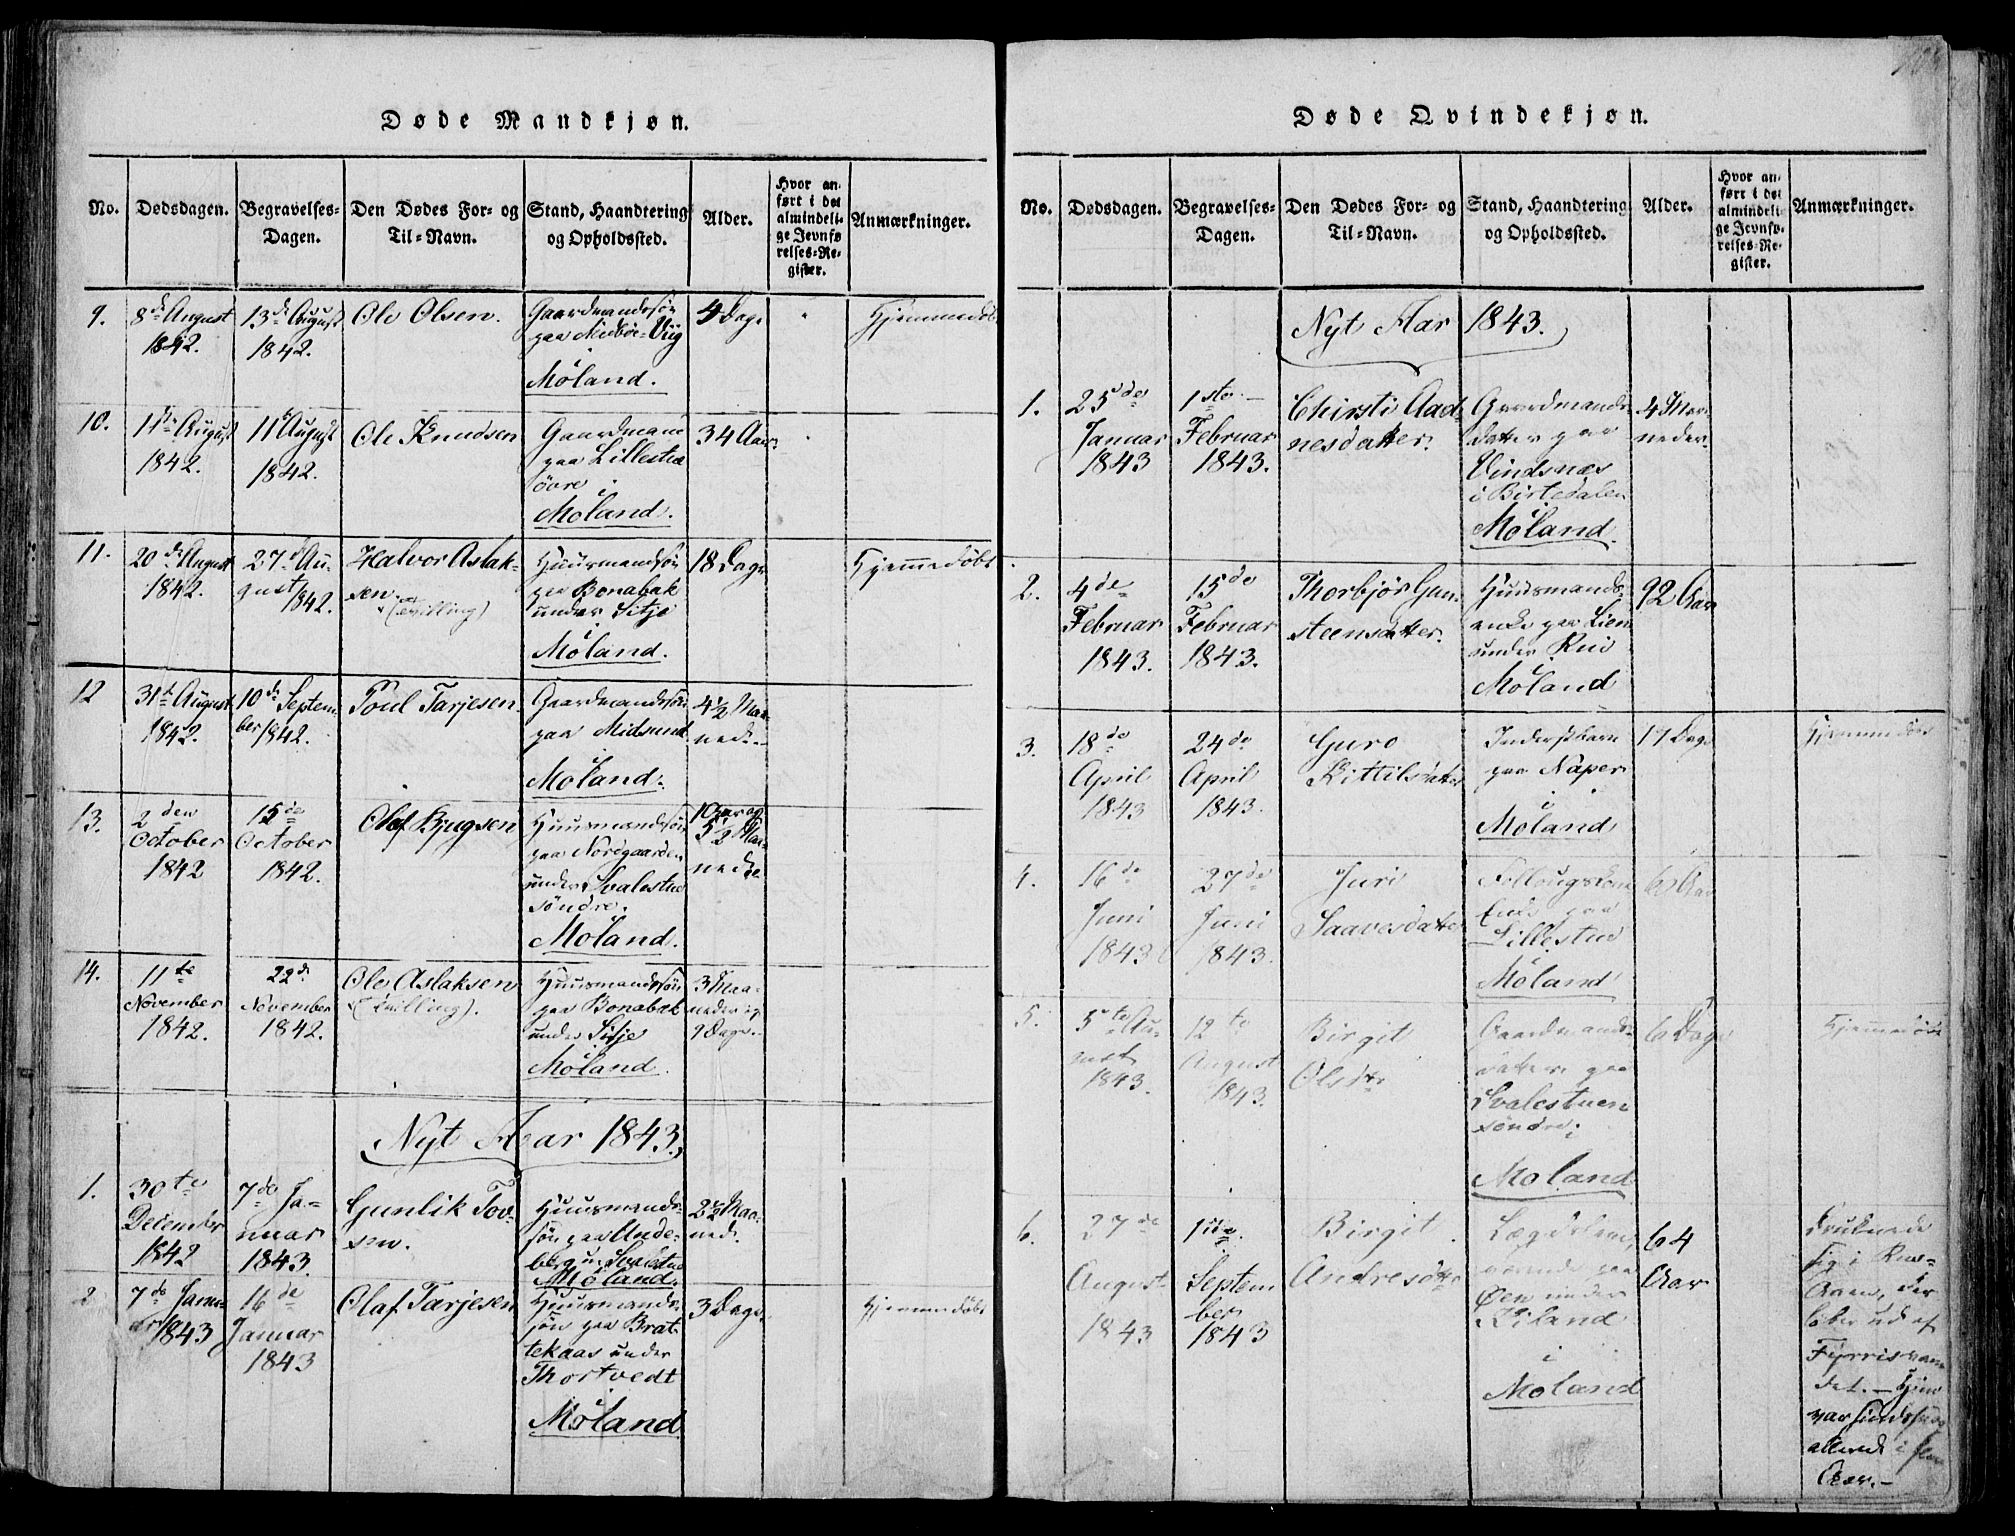 Døde Mandkjøn.
No.
Dødsdagen.
Begravelses-
Dagen.
Den Dødes For- og
Til-Navn.
Stand, Haandtering
og Opholdssted.
Alder.
Hvor an-
ført i det
almindeli-
ge Jevnfø-
relses-Re-
gister.
Anmærkninger.
9.
8de August
1842.
13de August
1842.
Ole Olsen.
Gaardmandssøn
paa
Moland.
4 Dage
Hjemmedøbt
10.
11te August
1842.
11te August
1842.
Ole Knudsen
Gaardmand
paa Lillestu
øvre i
Moland.
34 Aar.
11.
20de August
1842.
27de Au-
gust 1842.
Halvor Aslak-
sen.
(Tvilling)
Huusmandssøn
paa Bonabak
under Sitje
Moland.
18 Dage
Hjemmedøbt
12
31te August
1842.
10de Septem-
ber 1842.
Poul Tarjesen
Gaardmandssøn
paa Midsund
Moland.
4½ Maa-
neder
13.
2den
October
1842
15de
October
1842.
Olaf Bjugsen
Huusmandssøn
paa Nordgaarden
under Svalestue
søndre.
Moland.
1 Aar og
5½ Maa-
neder
14.
11te
November
1842.
22de
November
1842.
Ole Aslaksen
(Tvilling).
Huusmandssøn
paa Bonabak
under Sitje
Moland.
3 Maa-
neder og
9 Dage.
Nyt Aar 1843.
1.
30te
December
1842
7de Ja-
nuar
1843.
Gunlik Tov-
sen.
Huusmands-
søn paa Unde-
berg u. Svalestue
Moland.
2½ Maa-
neder
2
7de Janu-
ar 1843
16de
Januar
1843
Olaf Tarjesen
Huusmands-
søn paa Brat-
tekaas under
Thortvedt
Moland
3 Dage.
Hjemmedøbt
Døde Qvindekjøn.
No.
Dødsdagen.
Begravelses-
Dagen.
Den Dødes For- og
Til-Navn.
Stand, Haandtering
og Opholdssted.
Alder.
Hvor an-
ført i det
almindeli-
ge Jevnfø-
relses-Re-
gister.
Anmærkninger.
Nyt Aar 1843.
1.
25de
Januar
1843
1ste
Februar
1843.
Chirsti Aad-
nesdatter.
Gaardmands-
datter paa
Vindsnæs
i Birtedalen
Moland.
4 Maa-
neder.
2.
4de
Februar
1843.
15de
Februar
1843.
Thorbjør Gun-
steensdatter.
Huusmands-
enke paa Lien
under Rui
Moland
92 Aar
3.
18de
April
1843
24de
April
1843.
Guro
Kittilsdatter
Inderstbarn
paa Naper
i
Moland
17 Dage
Hjemmedøbt
4.
16de
Juni
1843
27de
Juni
1843.
Juri
Saavesdatter
Follougskone
Enke paa
Lillestue
Moland
5.
5te Au-
gust
1843.
12te
August
1843.
Birgit
Olsdtr
Gaardmands-
datter paa
Svalestuen
søndre i
Moland
6 Dage
Hjemmedøbt
6.
27de
August
1843
1ste
Septem
ber
1843
Birgit
Andresdtr
Lægdslem,
værende paa
Øen under
Kiland
i
Moland
64
Aar
druknede
sig i
Aaen, der
løber ud af
Fyrrisvan
det. — Hun
var sindssvag
allerede i flere
Aar. —